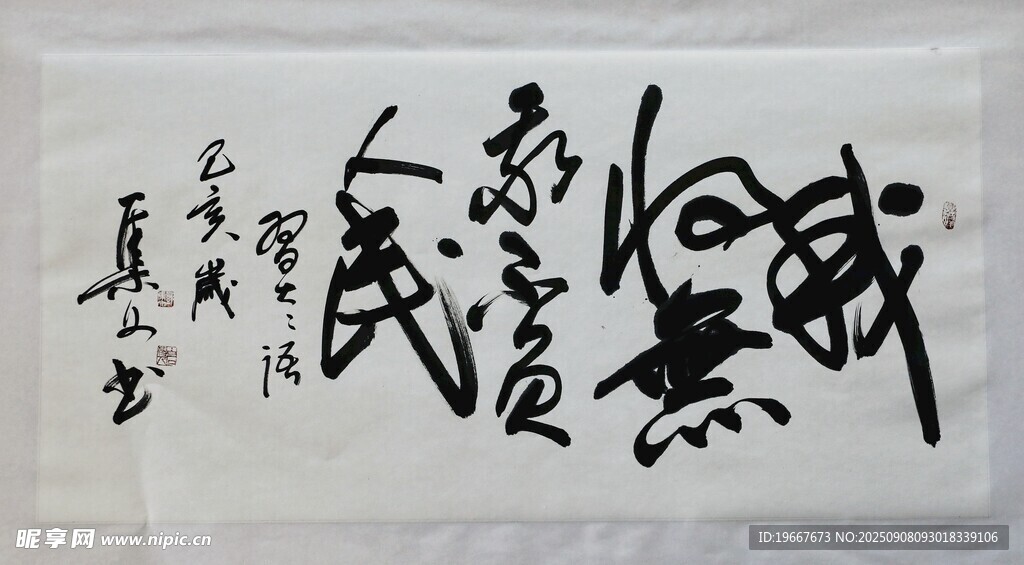 我
将無
我不負
人民
習大〻語
己亥歲
集文书
昵享网 www.nipic.cn
ID:19667673 NO:20250908093018339106